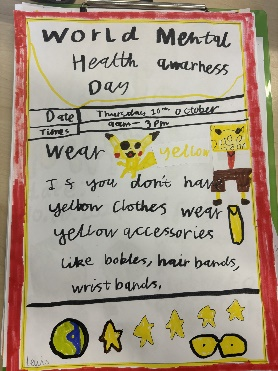 World Mental
Health awarness
Day
Date Thursday 10th October
Times 9am - 3pm
Wear yellow
If you don't hav
yellow clothes wear
yellow accessories
like bobles, hair bands,
wrist bands.